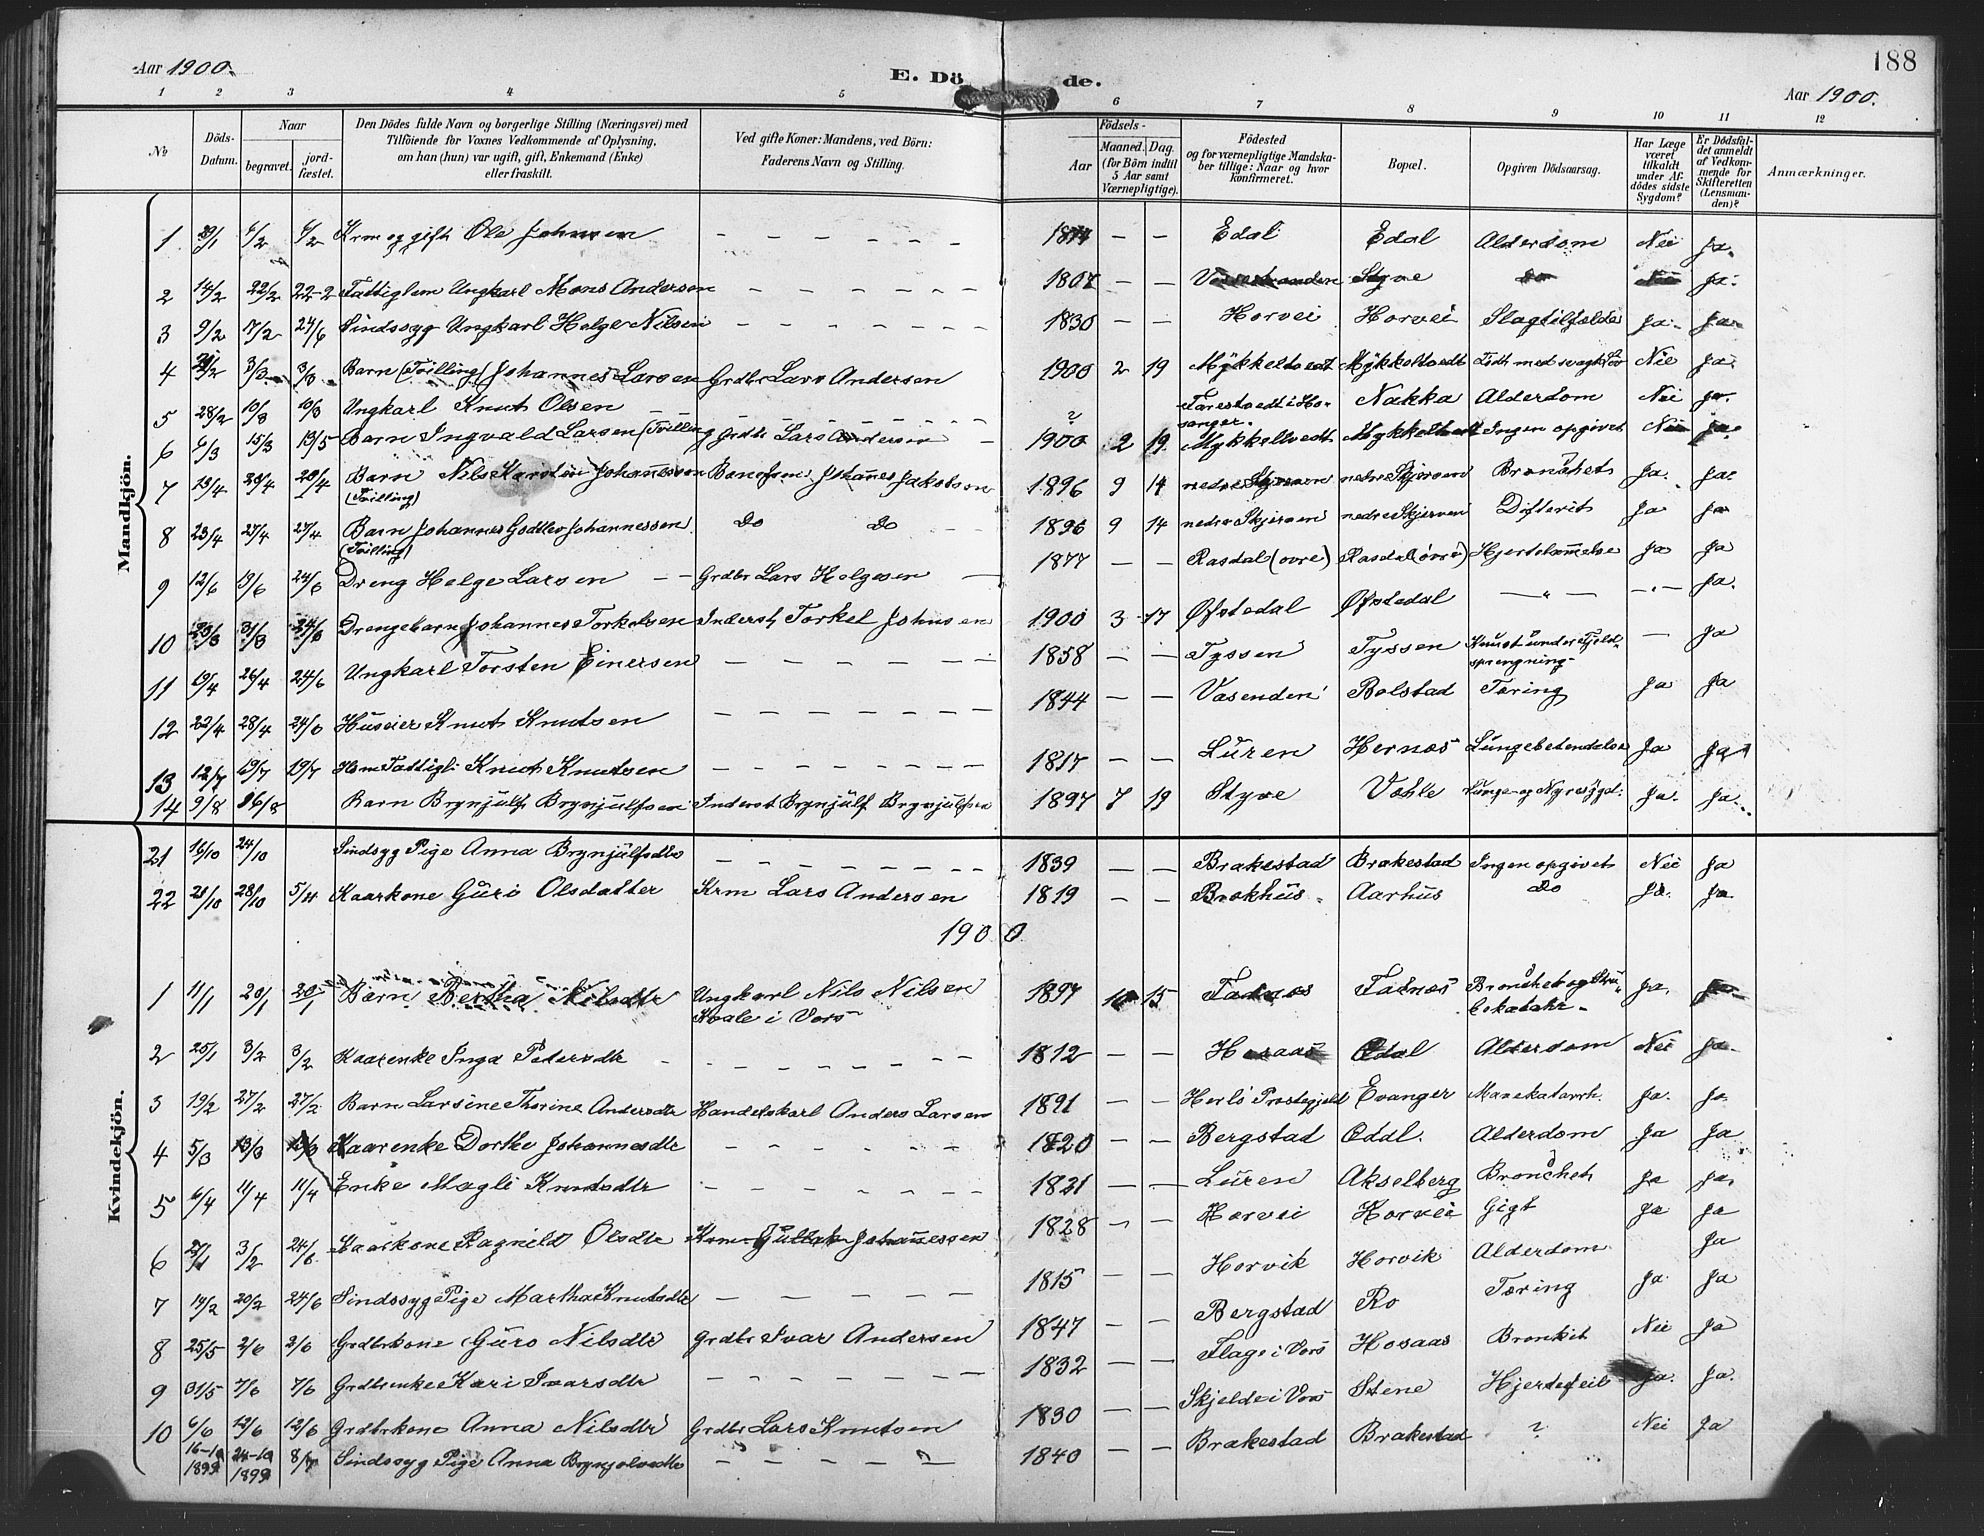 188
Aar 1900. E. Dö de. Aar 1900.
1 2 3 4 5 6 7 8 9 10 11 12
No
Döds-Datum.
Naar
begravet. jord-fæstet.
Den Dödes fulde Navn og borgerlige Stilling (Næringsvei) med
Tilföiende for Voxnes Vedkommende af Oplysning,
om han (hun) var ugift, gift, Enkemand (Enke)
eller fraskilt.
Ved gifte Koner: Mandens, ved Börn:
Faderens Navn og Stilling.
Födsels-
Aar Maaned. Dag.
(for Börn indtil
5 Aar samt
Værnepligtige).
Födested
og for værnepligtige Mandska-
ber tillige: Naar og hvor
konfirmeret.
Bopæl.
Opgiven Dödsaarsag.
Har Læge
været
tilkaldt
under Af-
dödes sidste
Sygdom?
Er Dödsfal-
det anmeldt
af Vedkom-
mende for
Skifteretten
(Lensman-
den)?
Anmærkninger.
Mandkjön.
1 6/2 6/2 Krm og gift Ole Johnsen — — Edal Edal Alderdom Nei Ja.
2 14/2 22/2 22-2 Fattiglem Ungkarl Mons Anderson — — 1807 — — Styve Do Nei Ja.
3 9/2 17/2 24/6 Sindssyg Ungkarl Helge Nilsen 1830 — — Horvei Horvei Slagtilfælde Ja. Ja.
4 3/3 3/3 Barn (Tvilling) Johannes Larsen Grdbr Lars Andersen 1900 2 19 Mykkeltvedt Mykkeltvedt Födt med svagt Liv Nei Ja.
5 28/2 10/3 10/3 Ungkarl Knut Olsen — — ? Farestvedt i Ho-
sanger. Nakka Alderdom Nei Ja.
6 6/3 15/3 15/3 Barn Ingvald Larsen (Tvilling) Grdbr Lars Andersen 1900 2 19. Mykkeltvedt Mykkeltvedt Ingen opgivet Nei Ja.
7 23/4 28/4 28/4 Barn Nils Karsten Johannessen
(Tvilling) Johannes Jakobsen 1896 9 14 nedre Skjerven nedre Skjerven Bronchet Ja. Ja.
8 23/4 27/4 27/4 Barn Johannes Gedtlev Johannessen
(Tvilling) Do Do 1896 9 14 nedre Skjerven nedre Skjerven Difterit Ja Ja
9 12/6 19/6 24/6 Dreng Helge Larsen — — Grdbr Lars Helgesen — 1877 — — Rasdal (övre) Rasdal (övre) Hjertelammelse Ja Ja
10 23/3 31/3 24/6 Drengebarn Johannes Torkelsen Inderst Torkel Johnsen 1900 3 17 Øvstedal Øvstedal — " — — . — Ja.
11 19/4 26/4 24/6 Ungkarl Torsten Einersen 1858 — — Tyssen Tyssen Knust under Fjeld-
sprengning — Ja
12 22/4 28/4 24/6 Huseier Knut Knutsen 1844 — — Vasenden Bolstad Tæring Ja Ja
13 12/7 19/7 19/7 Fattigl. Knut Knutsen 1817 — — Lüren Hernæs Lungebetendelse Ja Ja
14 9/8 16/8 Barn Brynjülf Brynjulfsen Inderst Brynjülf Brynjülfsen 1897 7 19 Styve Væhle Lunge- og Nyresygd. Ja. Ja.
Kvindekjön.
21 16/10 24/10 Sindsyg Pige Anna Brynjülfsdtr 1839 — — Brakestad Brakestad Ingen opgivet Nei Ja
22 21/10 28/10 5/4 Kaarkone Güri Olsdatter Krm Lars Andersen 1819 — — Brekhüs. Aarhus Do Ja. Ja.
1900
1 11/1 20/1 20/1 Barn Bertha Nilsdtr Ungkarl Nils Nilsen
Kvale i Vors 1897 10 15 Fadnæs Fadnæs Bronchet og Stru-
bekatahr. Ja.
2 25/1 3/2 3/2 Kaarenke Inga Pedersdtr 1812 — — Hosaas Edal Alderdom Nei Ja.
3 19/2 27/2 27/2 Barn Larsine Thorine Andersdtr Handelskarl Anders Larsen 1891 — — Herlö Prestegjeld Evanger Mavekatarrh. Ja. Ja.
4 5/3 13/3 13/3 Kaarenke Dorthe Johannesdtr 1820 — — Bergstad Edal. Alderdom Ja Ja
5 6/4 11/4 11/4 Enke Magli Knutsdtr 1821 — — Lüren Akselberg Bronchet Ja Ja.
6 3/2 24/6 Kaarkone Ragnild Olsdtr Krm Gullak Johannessen 1828 — — Horvei Horvei Gigt Ja Ja
7 14/2 20/2 24/6 Sindssyg Pige Martha Knutsdtr 1815 — — Horvik Horvik Alderdom Ja
8 25/5 2/6 2/6 Grdbrkone Güro Nilsdtr Grdbr Ivar Andersen 1847 — — Bergstad Ro Tæring Ja. Ja
9 31/5 7/6 7/6 Grdbrenke Kari Ivarsdtr 1832 — — Flage i Vors Hosaas Bronkit Nei Ja
10 6/6 12/6 12/6 Grdbrkone Anna Nilsdtr Grdbr Lars Knutsen 1830 — — Skjelde i Vors Stene Hjertefeil Ja. Ja.
16-10 1899 24-10 1899 8/7 Sindssyg Pige Anna Brynjolvsdtr 1840 — — Brakestad Brakestad ? Nei Ja